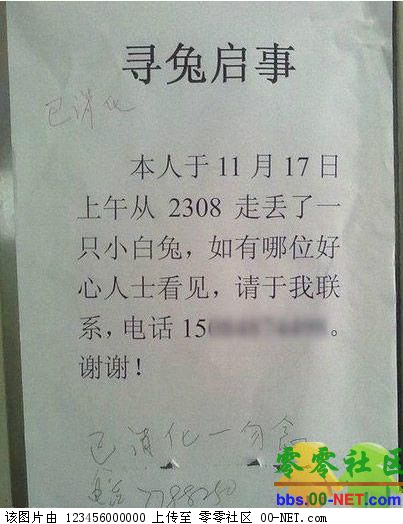 寻兔启事
已消化
本人于11月17日
上午从2308走丢了一
只小白兔，如有哪位好
心人士看见，请于我联
系，电话15
。
谢谢！
已消化一勿念
零零社区
bbs.00-NET.com
该图片由 123456000000 上传至 零零社区 00-NET.com